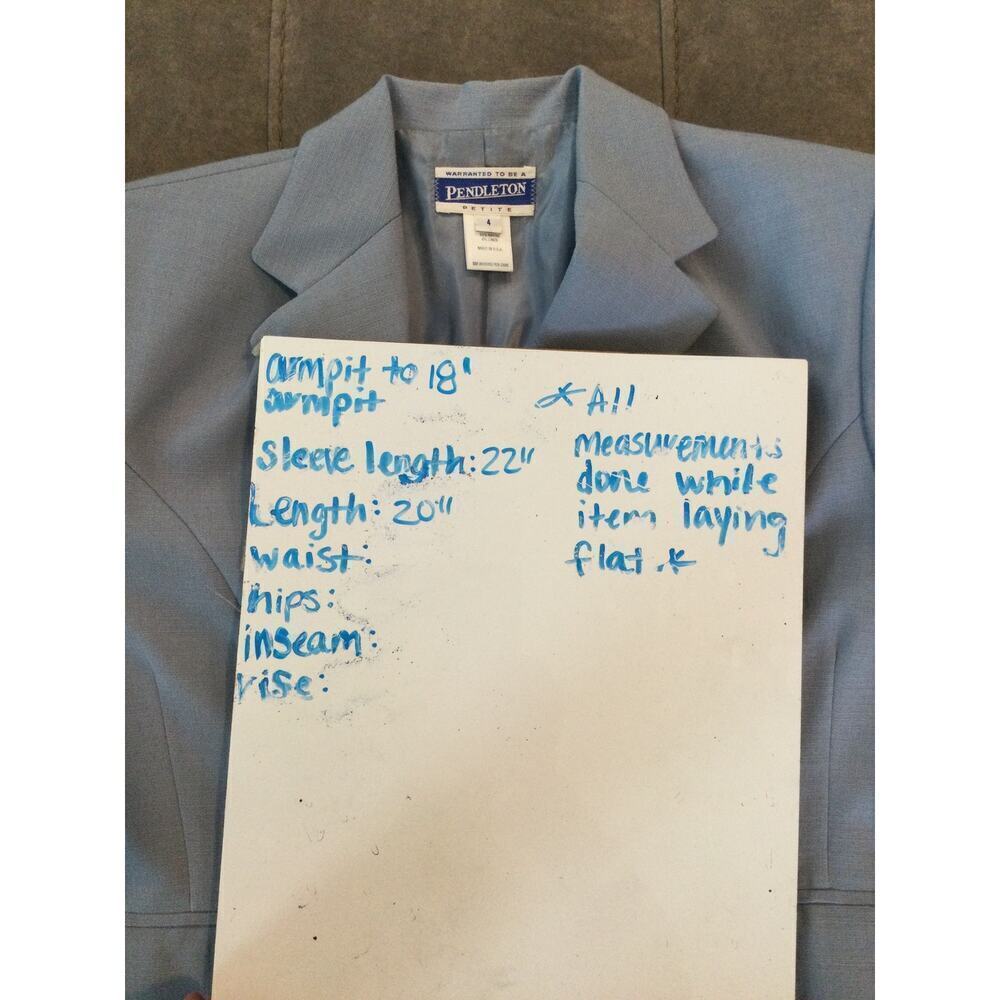 WARRANTED TO BE A
PENDLETON
PETITE
4
MADE IN U.S.A.
armpit to 18"
armpit
Sleeve length: 22"
Length: 20"
waist:
hips:
inseam:
rise:
* All
measurements
done while
item laying
flat.*